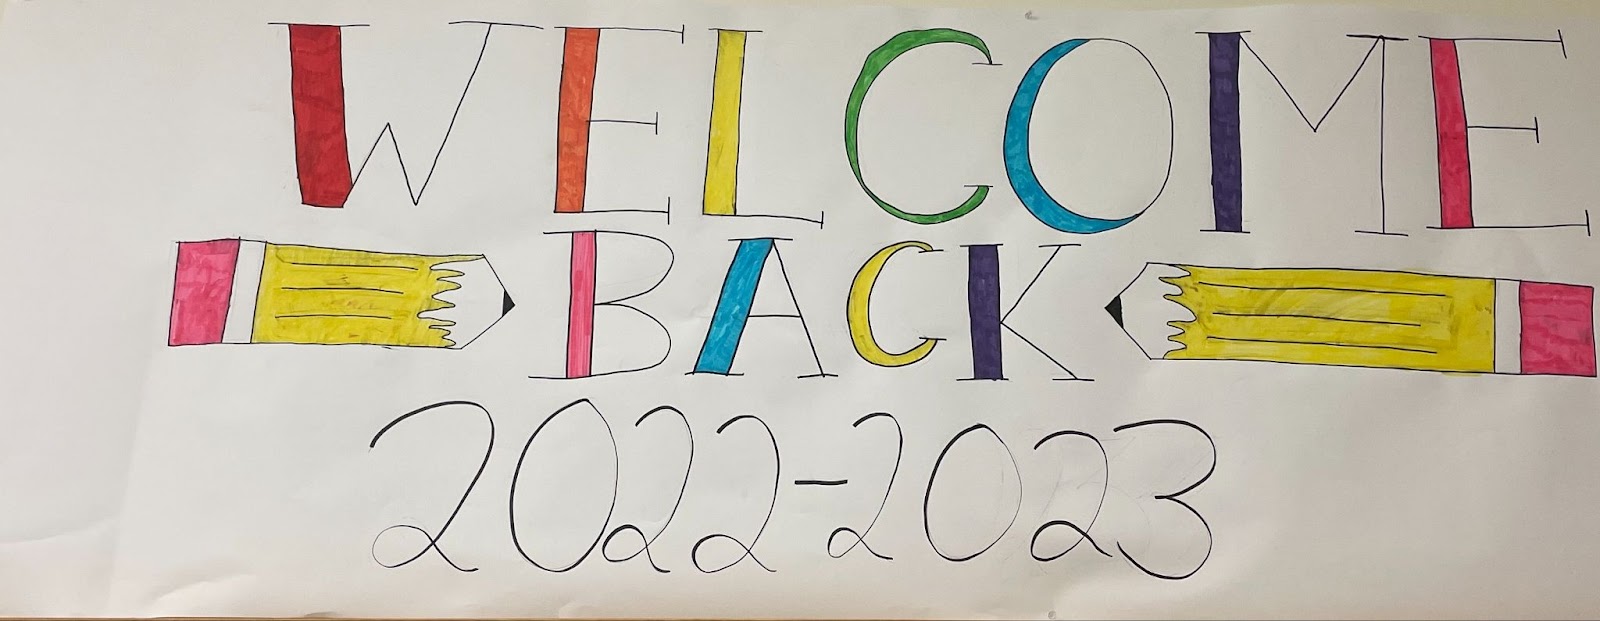 WELCOME
BACK
2022-2023